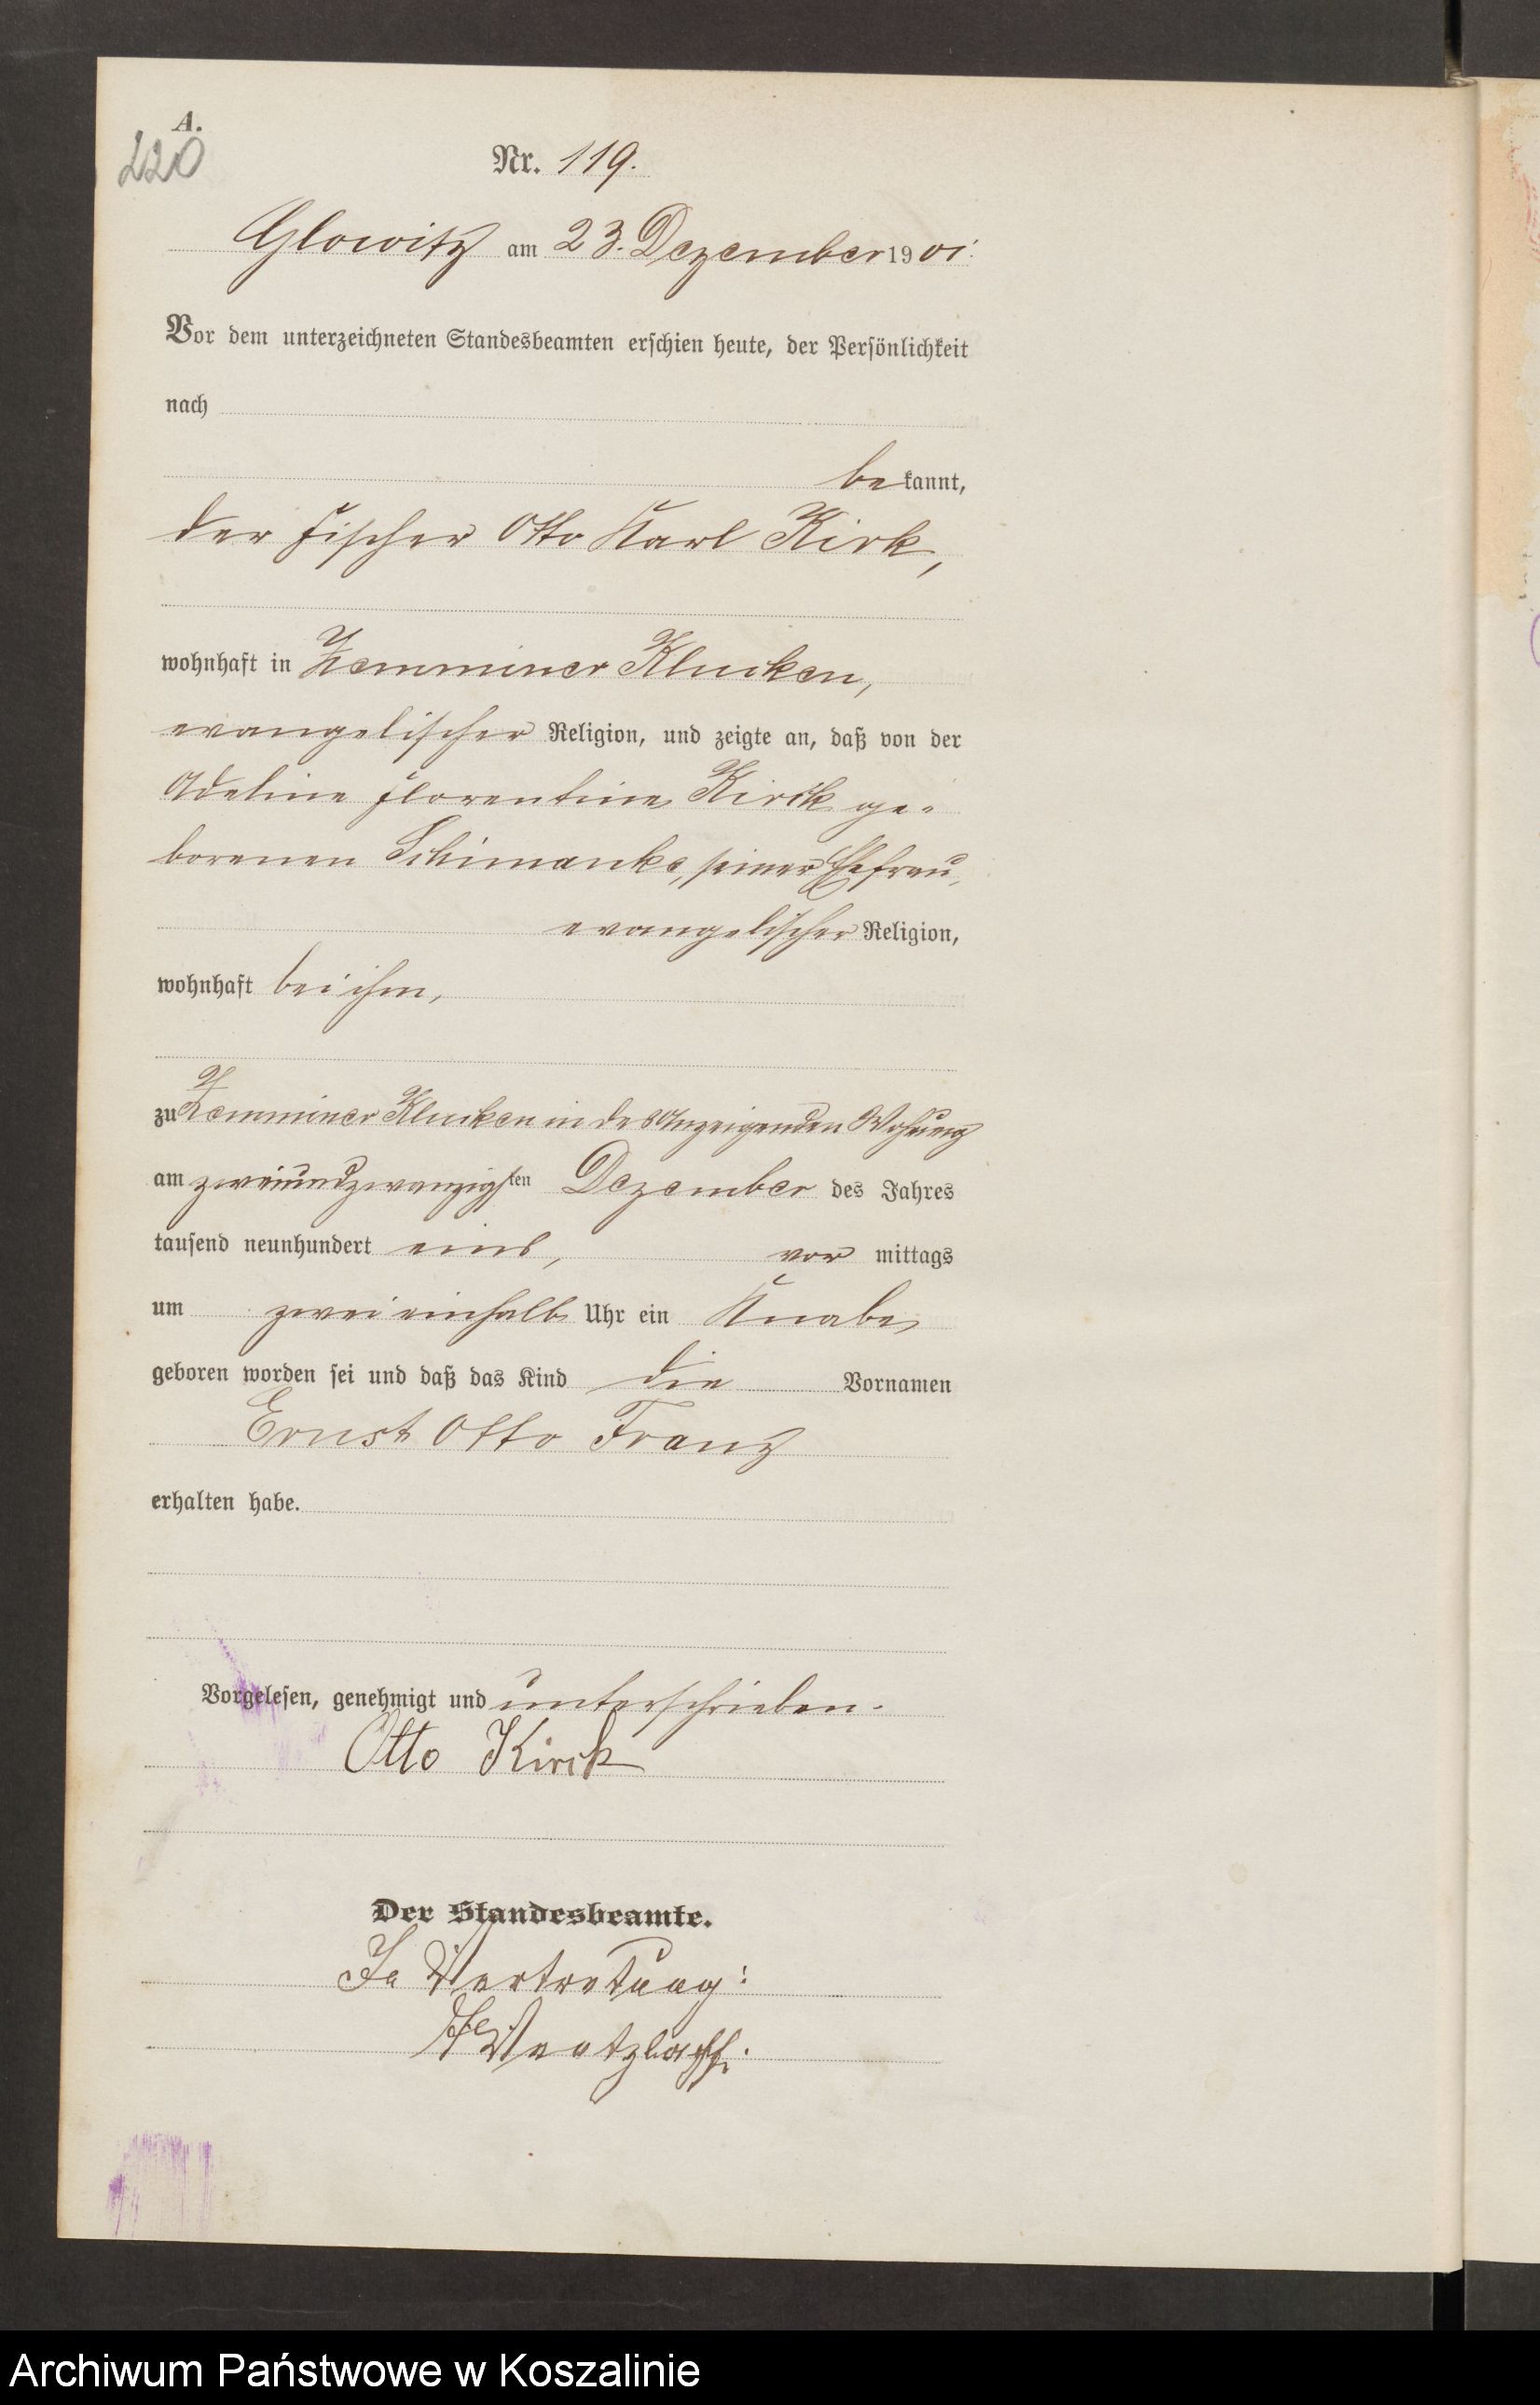 A.
220
Nr. 119.
Glowitz am 23. Dezember 1901.
Vor dem unterzeichneten Standesbeamten erschien heute, der Persönlichkeit
nach
bekannt,
der Fischer Otto Karl Kirk,
wohnhaft in Zemminer Klucken,
evangelischer Religion, und zeigte an, daß von der
Adeline Florentine Kirck ge-
borenen Schimanke, seiner Ehefrau,
evangelischer Religion,
wohnhaft bei ihm,
zu Zemminer Klucken in des Anzeigenden Wohnung
am zweiundzwanzigsten Dezember des Jahres
tausend neunhundert eins, vor mittags
um zwei einhalb Uhr ein Knabe
geboren worden sei und daß das Kind die Vornamen
Ernst Otto Franz
erhalten habe.
Vorgelesen, genehmigt und unterschrieben.
Otto Kirck
Der Standesbeamte.
In Vertretung:
Archiwum Państwowe w Koszalinie